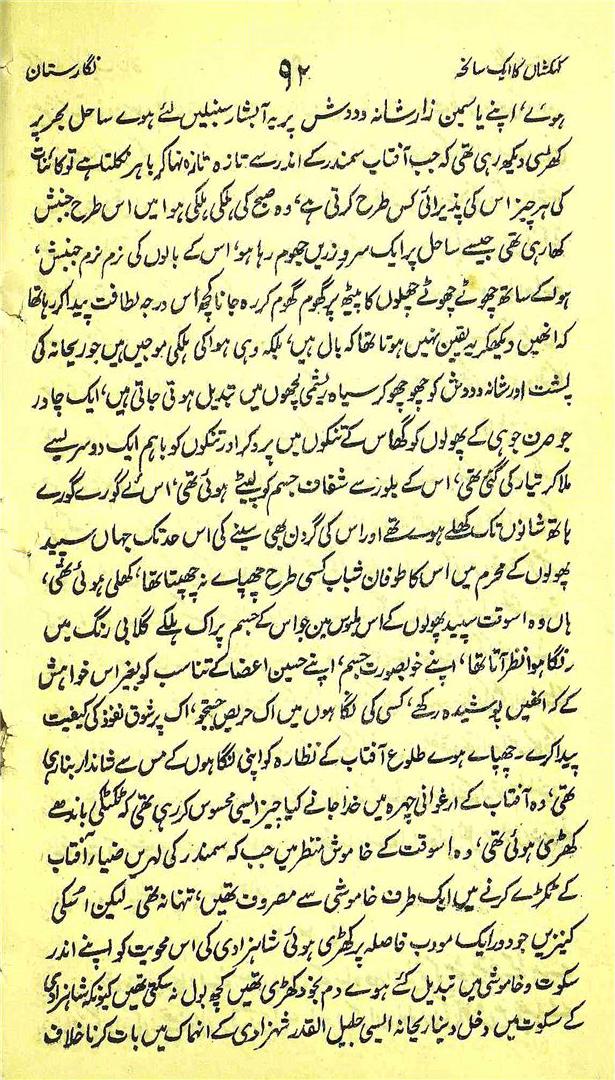 کہکشاں کا ایک سانحہ ۹۲ نگارستان
ہوئے، اپنے یاسمین زار شانہ و دوش پر یہ آبشار سنبلیں لئے ہوے ساحل بحر پر
کھڑی دیکھ رہی تھی کہ جب آفتاب سمندر کے اندر سے تازہ تازہ نہا کر باہر نکلتا ہے تو کائنات
کی ہر چیز اس کی پذیرائی کس طرح کرتی ہے، وہ صبح کی ہلکی ہلکی ہوا میں اس طرح جنبش
کھا رہی تھی جیسے ساحل پر ایک سرو زریں جھوم رہا ہو، اس کے بالوں کی نرم نرم جنبش،
ہوا کے ساتھ چھوٹے چھوٹے چھلوں کا پیٹھ پر گھوم گھوم کر رہ جانا کچھ اس درجہ لطافت پیدا کر رہا تھا
کہ انھیں دیکھ کر یہ یقین نہیں ہوتا تھا کہ بال ہیں، بلکہ وہی ہوا کی ہلکی موجیں ہیں جو ریحانہ کی
پشت اور شانہ و دوش کو چھو چھو کر سیاہ ریشمی لچھوں میں تبدیل ہوتی جاتی ہیں، ایک چادر
جو صرف جوہی کے پھولوں کو گھاس کے تنکوں میں پرو کر اور تنکوں کو باہم ایک دوسرے سے
ملا کر تیار کی گئی تھی، اس کے بلور سے شفاف جسم کو لپیٹے ہوئی تھی، اس کے گورے گورے
ہاتھ شانوں تک کھلے ہوے تھے اور اس کی گردن بھی سینے کی اس حد تک جہاں سپید
پھولوں کے محرم میں اس کا طوفان شباب کسی طرح چھپاے نہ چھپتا تھا، کھلی ہوئی تھی،
ہاں وہ اسوقت سپید پھولوں کے اس ملبوس میں جو اس کے جسم پر اک ہلکے گلابی رنگ میں
رنگا ہوا نظر آتا تھا، اپنے خوبصورت جسم، اپنے حسین اعضا کے تناسب کو بغیر اس خواہش
کے کہ انھیں پوشیدہ رکھے، کسی کی نگاہوں میں اک حریص جستجو، اک پر شوق نفوذ کی کیفیت
پیدا کرے۔ چھپاے ہوے طلوع آفتاب کے نظارہ کو اپنی نگاہوں کے مس سے شاندار بنا رہی
تھی، وہ آفتاب کے ارغوانی چہرہ میں خدا جانے کیا چیز ایسی محسوس کر رہی تھی کہ ٹکٹکی باندھے
کھڑی ہوئی تھی، وہ اسوقت کے خاموش منظر میں جب کہ سمندر کی لہریں ضیاء آفتاب
کے ٹکڑے کرنے میں ایک طرف خاموشی سے مصروف تھیں، تنہا نہ تھی۔ لیکن اسکی
کنیزیں جو دور ایک مودب فاصلہ پر کھڑی ہوئی شاہزادی کی اس محویت کو اپنے اندر
سکوت و خاموشی میں تبدیل کئے ہوے دم بخود کھڑی تھیں کچھ بول نہ سکتی تھیں کیونکہ شاہزادی
کے سکوت میں دخل دینا ریحانہ ایسی جلیل القدر شہزادی کے انہماک میں بات کرنا خلاف